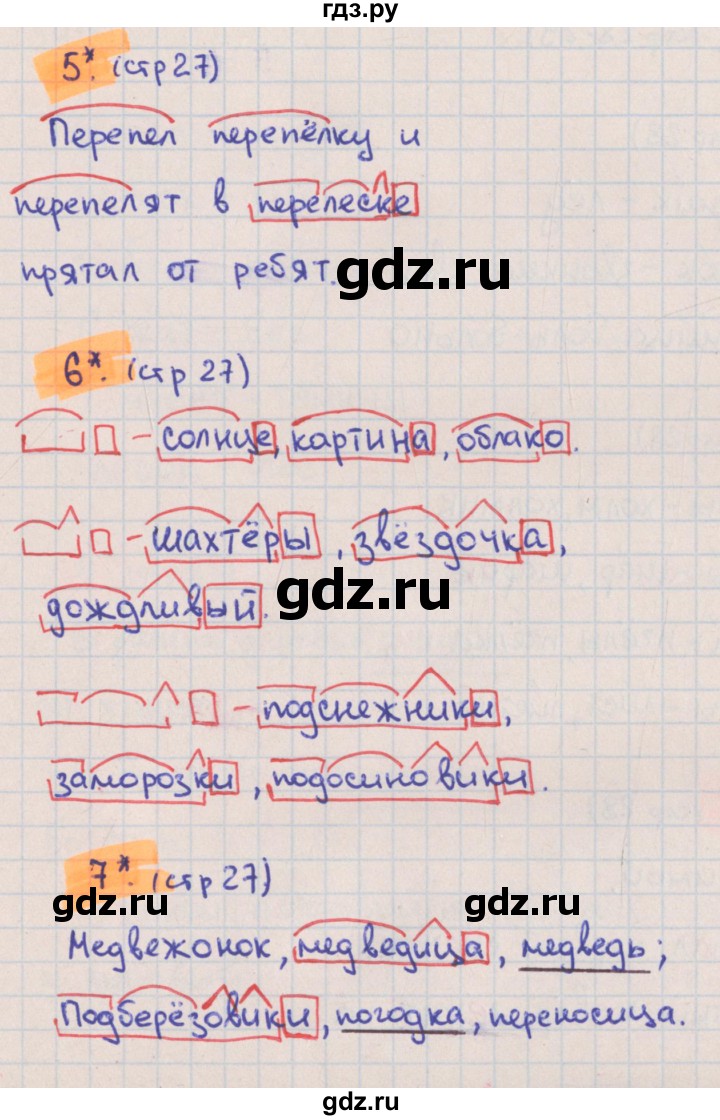 гдз.ру
5*. (стр 27)
Перепел перепёлку и
перепелят в перелеске
прятал от ребят.
gdz.ru
6*. (стр 27)
– солнце, картина, облако.
– шахтёры, звёздочка,
gdz.ru
дождливый.
– подснежники,
заморозки, подосиновики.
7*. (стр 27)
gdz.ru gdz.ru
Медвежонок, медведица, медведь;
Подберёзовики, погодка, переносица.
gdz.ru